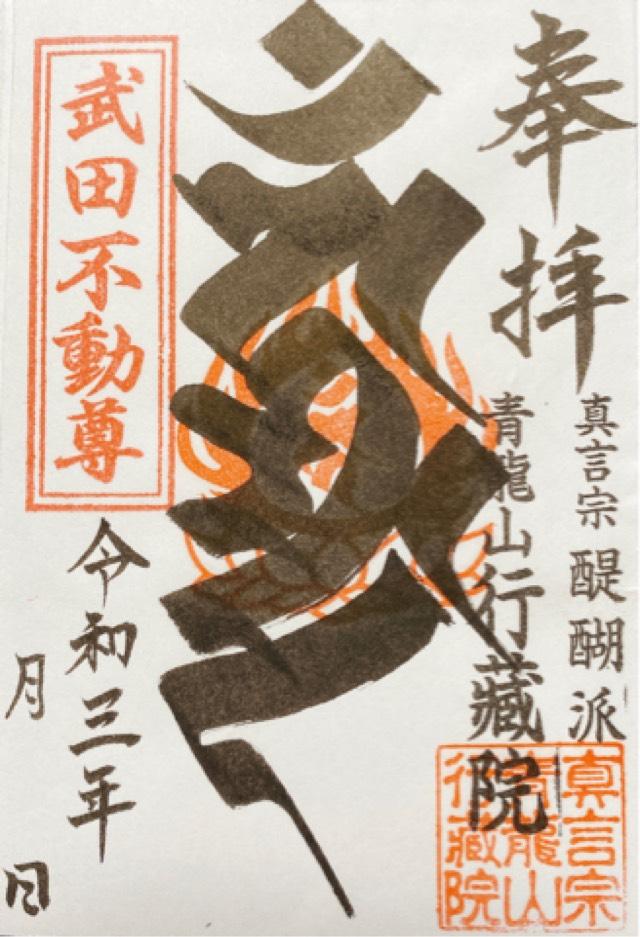 奉拝
真言宗 醍醐派
青龍山 行藏院
武田不動尊
令和三年
月
日
真言宗
青龍山
行藏院